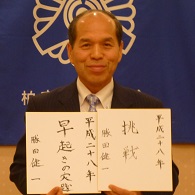 平成二十八年
挑戦
勝田健一
平成二十八年
早起きの実践
勝田健一
柏